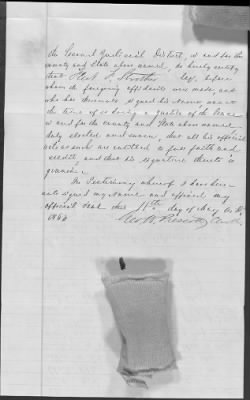 the Second Judicial District, in and for the
county and State above named, do hereby certify
that Esq. before
whom the foregoing affidavits were made and
who has thereunto signed his name was at
the time of so doing a Justice of the Peace
in and for the county and State above named
duly elected and sworn, that all his official
acts as such are entitled to full faith and
credit, and that his signature thereto is
genuine.
In Testimony whereof I have here-
unto signed my name and affixed my
official Seal this 11th day of May A.D.
Geo. W. Prescott Clerk.